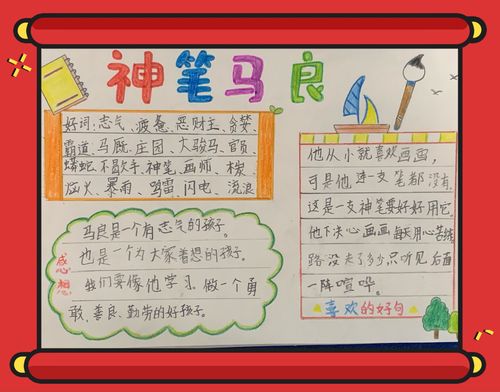 神笔马良
好词:志气、疲惫、恶财主、贪婪、
霸道、马厩、庄园、大骏马、官员、
不歇手、神笔、画师、木炭
火、暴雨、鸣雷、闪电、流浪
马良是一个有志气的孩子。
也是一个为大家着想的孩子。
我们要像他学习。做一个勇
敢、善良、勤劳的好孩子。
感想
他从小就喜欢画画,
可是他连一支笔都没有,
这是一支神笔要好好用它。
他下决心画画每天用心苦练
路没走了多少只听见后面
一阵喧哗。
喜欢的好句